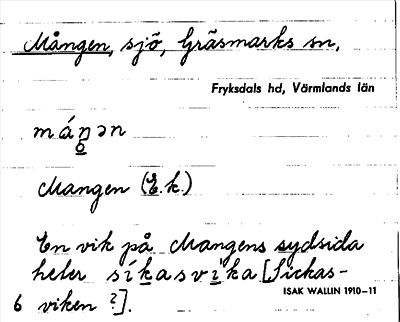 Mången, sjö, Gräsmarks sn,
Fryksdals hd, Värmlands län
máŋən
Mangen (E.k.)
En vik på Mangens sydsida
heter síkasvíka [Sickas-
ISAK WALLIN 1910-11
6 viken ?].